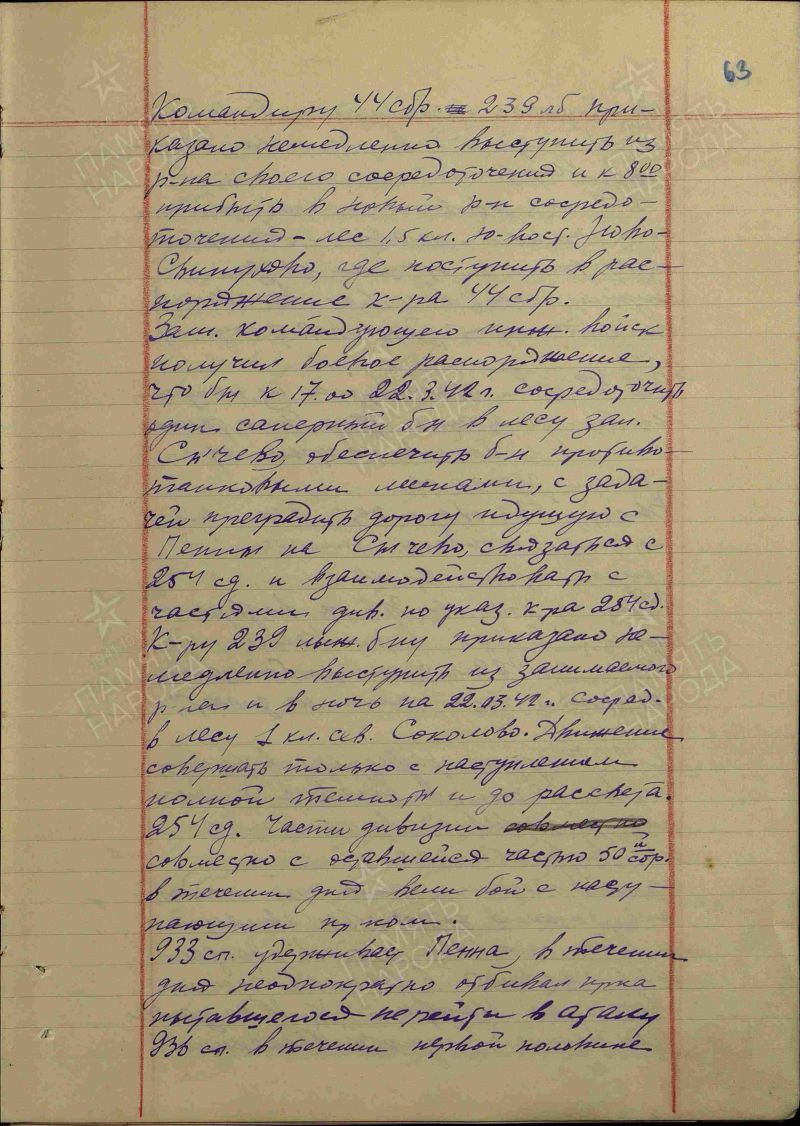 63
Командиру 44 сбр. 239 лб при-
казано немедленно выступить из
р-на своего сосредоточения и к 8 00
прибыть в новый р-н сосредо-
точения - лес 1,5 кл. ю-вост. Ново-
Свинухово, где поступить в рас-
поряжение к-ра 44 сбр.
Зам. командующего инж. войск
получил боевое распоряжение,
что бы к 17.00 22.3.42 г. сосредоточить
один саперный б-н в лесу зап.
Сычево, обеспечить б-н противо-
танковыми минами, с зада-
чей преградить дорогу идущую с
Пенны на Сычево, связаться с
254 сд. и взаимодействовать с
частями див. по указ. к-ра 254 сд.
К-ру 239 лыж. б-ну приказано не-
медленно выступить из занимаемого
р-на и в ночь на 22.03.42 г. сосред.
в лесу 1 кл. сев. Соколово. Движение
совершать только с наступлением
полной темноты и до рассвета.
254 сд. Части дивизии совместно
совместно с оставшейся частью 50й сбр.
в течении дня вели бой с насту-
пающим пр-ком.
933 сп. удерживает Пенна, в течении
дня неоднократно отбивал пр-ка
пытавшегося перейти в атаку
936 сп. в течении первой половине